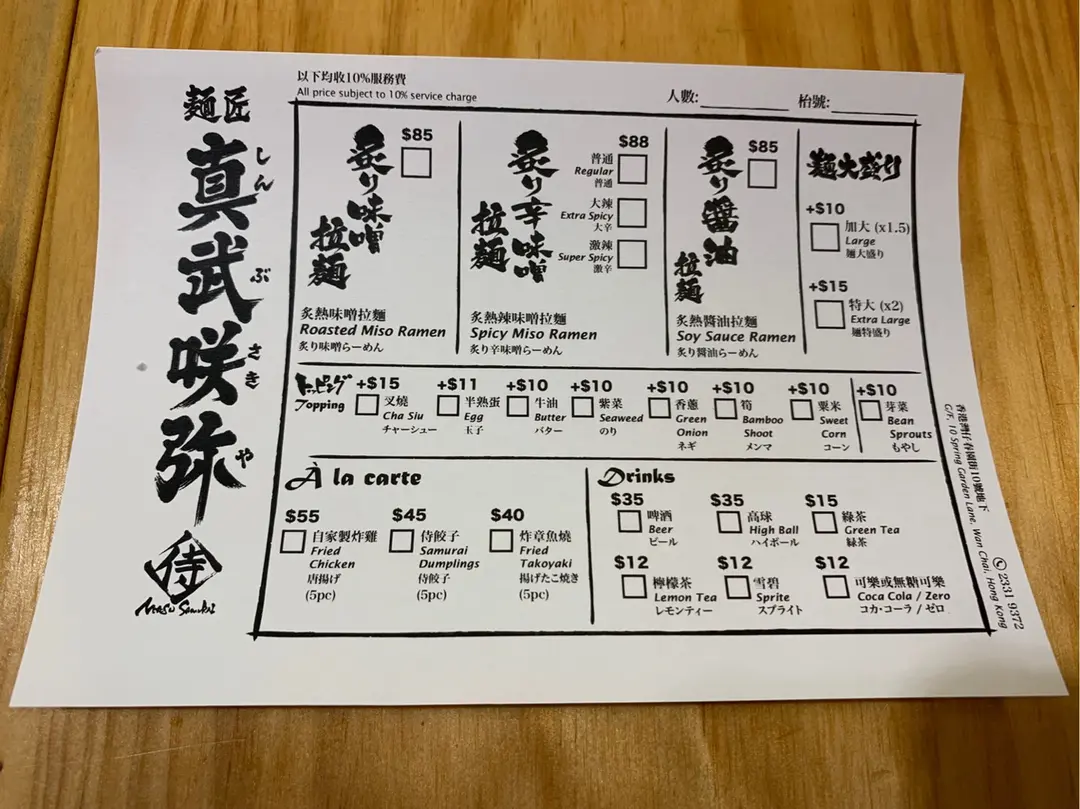 麺匠
真武咲弥
しん
ぶ
さき
や
侍
以下均收10%服務費
All price subject to 10% service charge
人數:
枱號:
炙り味噌
拉麺
$85
炙熱味噌拉麵
Roasted Miso Ramen
炙り味噌らーめん
炙り辛味噌
拉麺
$88
普通
Regular
普通
大辣
Extra Spicy
大辛
激辣
Super Spicy
激辛
炙熱辣味噌拉麵
Spicy Miso Ramen
炙り辛味噌らーめん
炙り醤油
拉麺
$85
炙熱醬油拉麵
Soy Sauce Ramen
炙り醤油らーめん
麺大盛り
+$10
加大 (x1.5)
Large
麺大盛り
+$15
特大 (x2)
Extra Large
麺特盛り
トッピング
Topping
+$15
叉燒
Cha Siu
チャーシュー
+$11
半熟蛋
Egg
玉子
+$10
牛油
Butter
バター
+$10
紫菜
Seaweed
のり
+$10
香蔥
Green
Onion
ネギ
+$10
筍
Bamboo
Shoot
メンマ
+$10
粟米
Sweet
Corn
コーン
+$10
芽菜
Bean
Sprouts
もやし
À la carte
$55
自家製炸雞
Fried
Chicken
唐揚げ
(5pc)
$45
侍餃子
Samurai
Dumplings
侍餃子
(5pc)
$40
炸章魚燒
Fried
Takoyaki
揚げたこ焼き
(5pc)
Drinks
$35
啤酒
Beer
ビール
$35
高球
High Ball
ハイボール
$15
綠茶
Green Tea
緑茶
$12
檸檬茶
Lemon Tea
レモンティー
$12
雪碧
Sprite
スプライト
$12
可樂或無糖可樂
Coca Cola / Zero
コカ・コーラ / ゼロ
香港灣仔春園街10號地下
G/F, 10 Spring Garden Lane, Wan Chai, Hong Kong
2331 9372